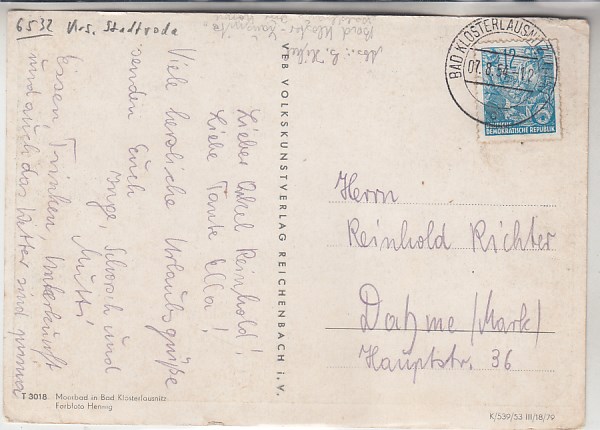 6532 Krs. Stadtroda
Abs.: G.
Bad Kloster-
Lieber Onkel Reinhold!
Liebe Tante Ella!
Viele herzliche Urlaubsgrüße
senden Euch
Inge, und
Mutti
Essen, Trinken, Unterkunft
und auch das Wetter sind prima
VEB VOLKSKUNSTVERLAG REICHENBACH i. V.
BAD KLOSTERLAUSNITZ
07.8.
DEUTSCHE
DEMOKRATISCHE REPUBLIK
Herrn
Reinhold Richter
Dahme (Mark)
Hauptstr. 36
T 3018 Moorbad in Bad Klosterlausnitz
Farbfoto Hennig
K/539/53 III/18/79